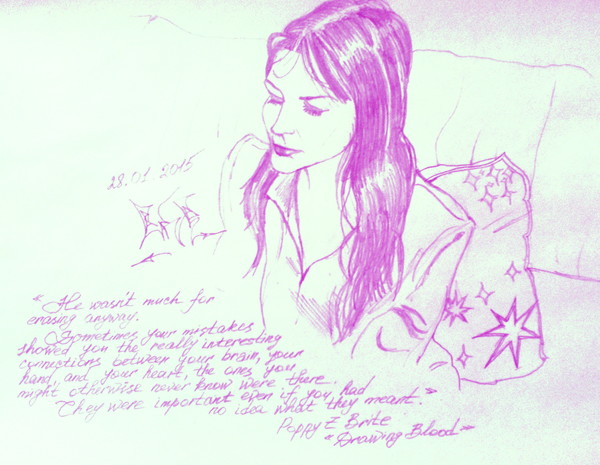 28.01 2015
« He wasn't much for
erasing anyway.
Sometimes your mistakes
showed you the really interesting
connections between your brain, your
hand, and your heart, the ones you
might otherwise never know were there.
They were important even if you had
no idea what they meant. »
Poppy Z Brite
« Drawing Blood »